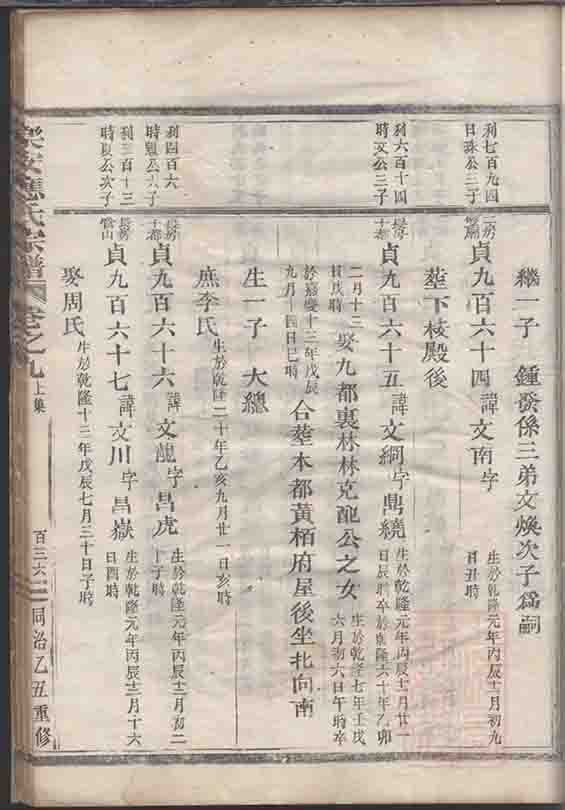 繼一子 鍾發係三弟文煥次子爲嗣
利七百九四
時珠公三子
貞九百六十四 諱文南字
生於乾隆元年丙辰十二月初九
日丑時
塟下棱殿後
利六百十四
時文公三子
十都
貞九百六十五 諱文綱字鼎繞
生於乾隆元年丙辰十二月廿一
日辰時卒於乾隆六十年乙卯
二月十三
日戌時
娶九都裏林林克配公之女
生於乾隆七年壬戌
六月初六日午時卒
於嘉慶十三年戊辰
九月十四日巳時
合塟本都黃栢府屋後坐北向南
生一子 大總
庶李氏
生於乾隆二十年乙亥九月廿一日亥時
利四百六
時
十都
貞九百六十六 諱文龍字昌虎
生於乾隆元年丙辰十二月初二
十子時
利三百十三
時良公次子
貞九百六十七 諱文川字昌嶽
生於乾隆元年丙辰十二月十六
日酉時
娶周氏
生於乾隆十三年戊辰七月三十日子時
樂安應氏宗譜 卷之九 上集 百三六 同治乙丑重修